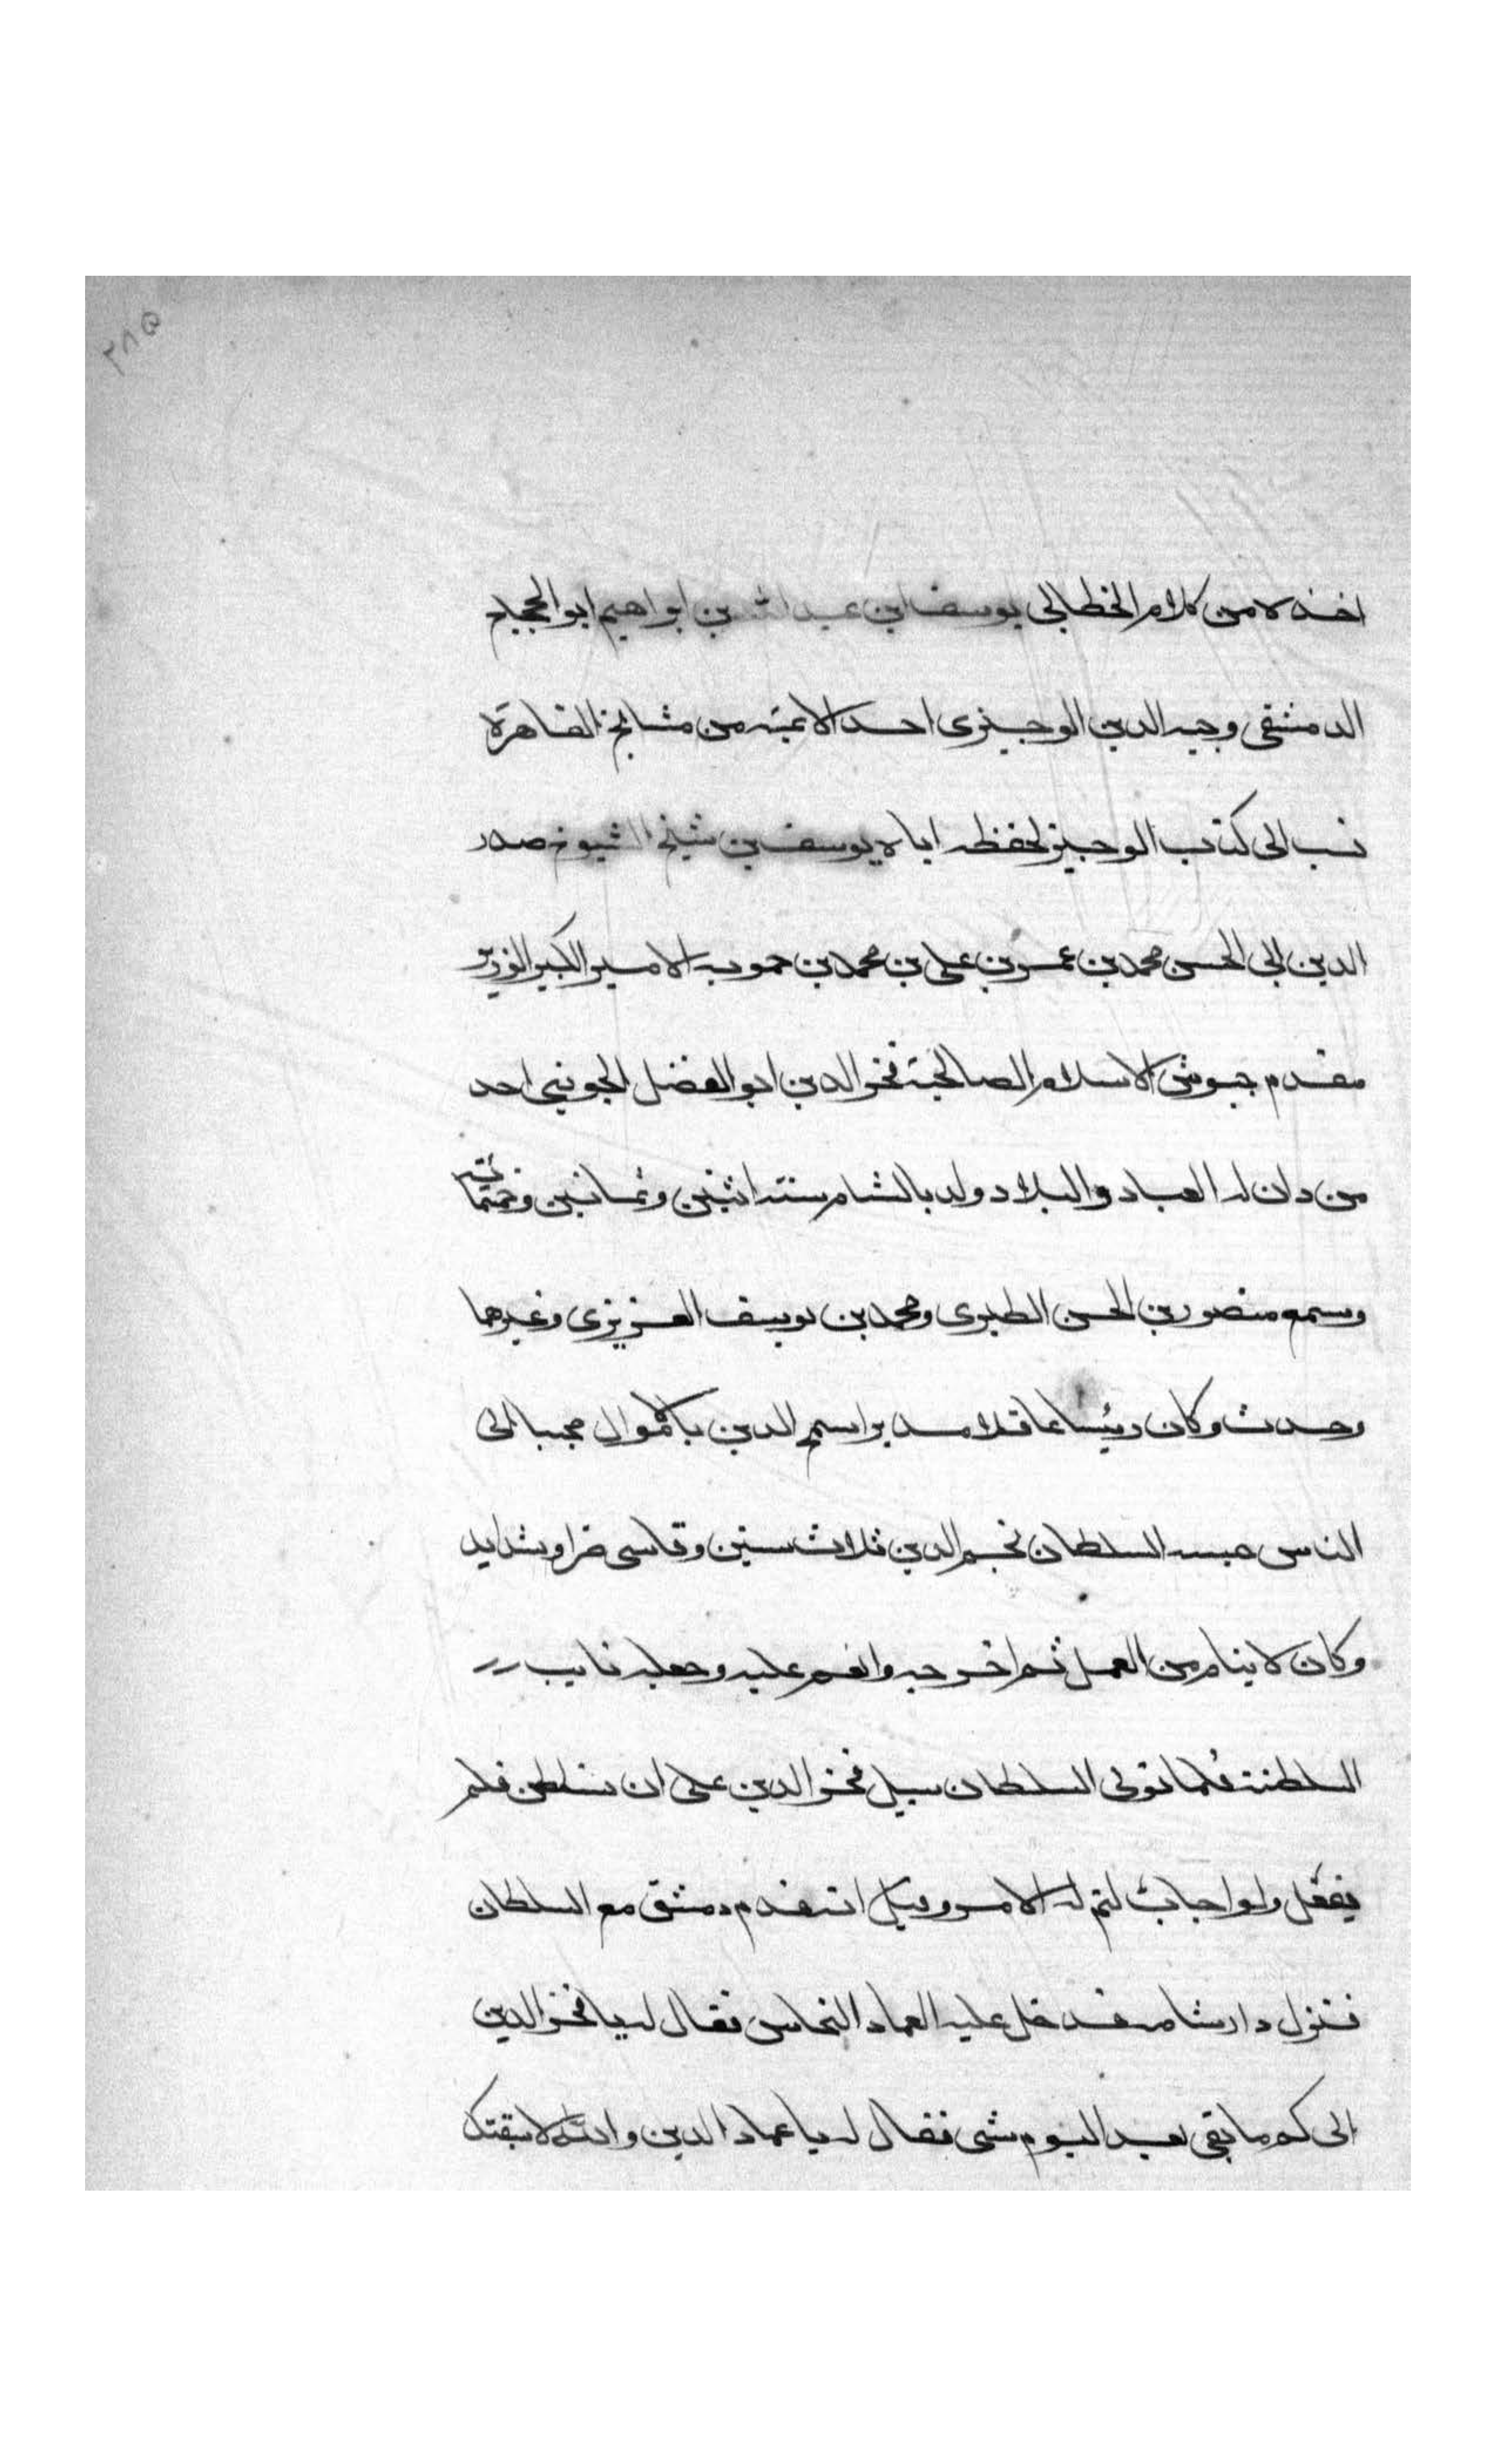 ٢٨٥
اخذه لا من كلام الخطابى يوسف ابن عبد الله بن ابراهيم ابو الحجاج
الدمشقى وجيه الدين الوجيزى احد الائمته من مشايخ القاهرة
نسب الى كتاب الوجيز لحفظه اياه يوسف بن شيخ الشيوخ صدر
الدين ابى الحسن محمد بن عمر بن على بن محمد بن حمويه الامير الكبير الوزير
مقدم جيوش الاسلام الصالحية فخر الدين ابو الفضل الجوينى احد
من دان له العباد والبلاد ولد بالشام سنة اثنين وثمانين وخمسمائة
وسمع منصور بن الحسن الطبرى ومحمد بن يوسف الغزنوى وغيرهما
وحدث وكان رئيسا عاقلا مدبرا سمح اليدين بالاموال محببا الى
الناس حبسه السلطان نجم الدين ثلاث سنين وقاسى ضرا وشدايد
وكان لا ينام من القمل ثم اخرجه وانعم عليه وجعله نايب
السلطنة فلما توفى السلطان سيل فخر الدين على ان يتسلطن فلم
يفعل ولو اجاب لتم له الامر وقيل انه قدم دمشق مع السلطان
فنزل دار شامه فدخل عليه العماد النحاس فقال له يا فخر الدين
الى كم ما بقى بعد اليوم شى فقال له يا عماد الدين والله لاسبقتك